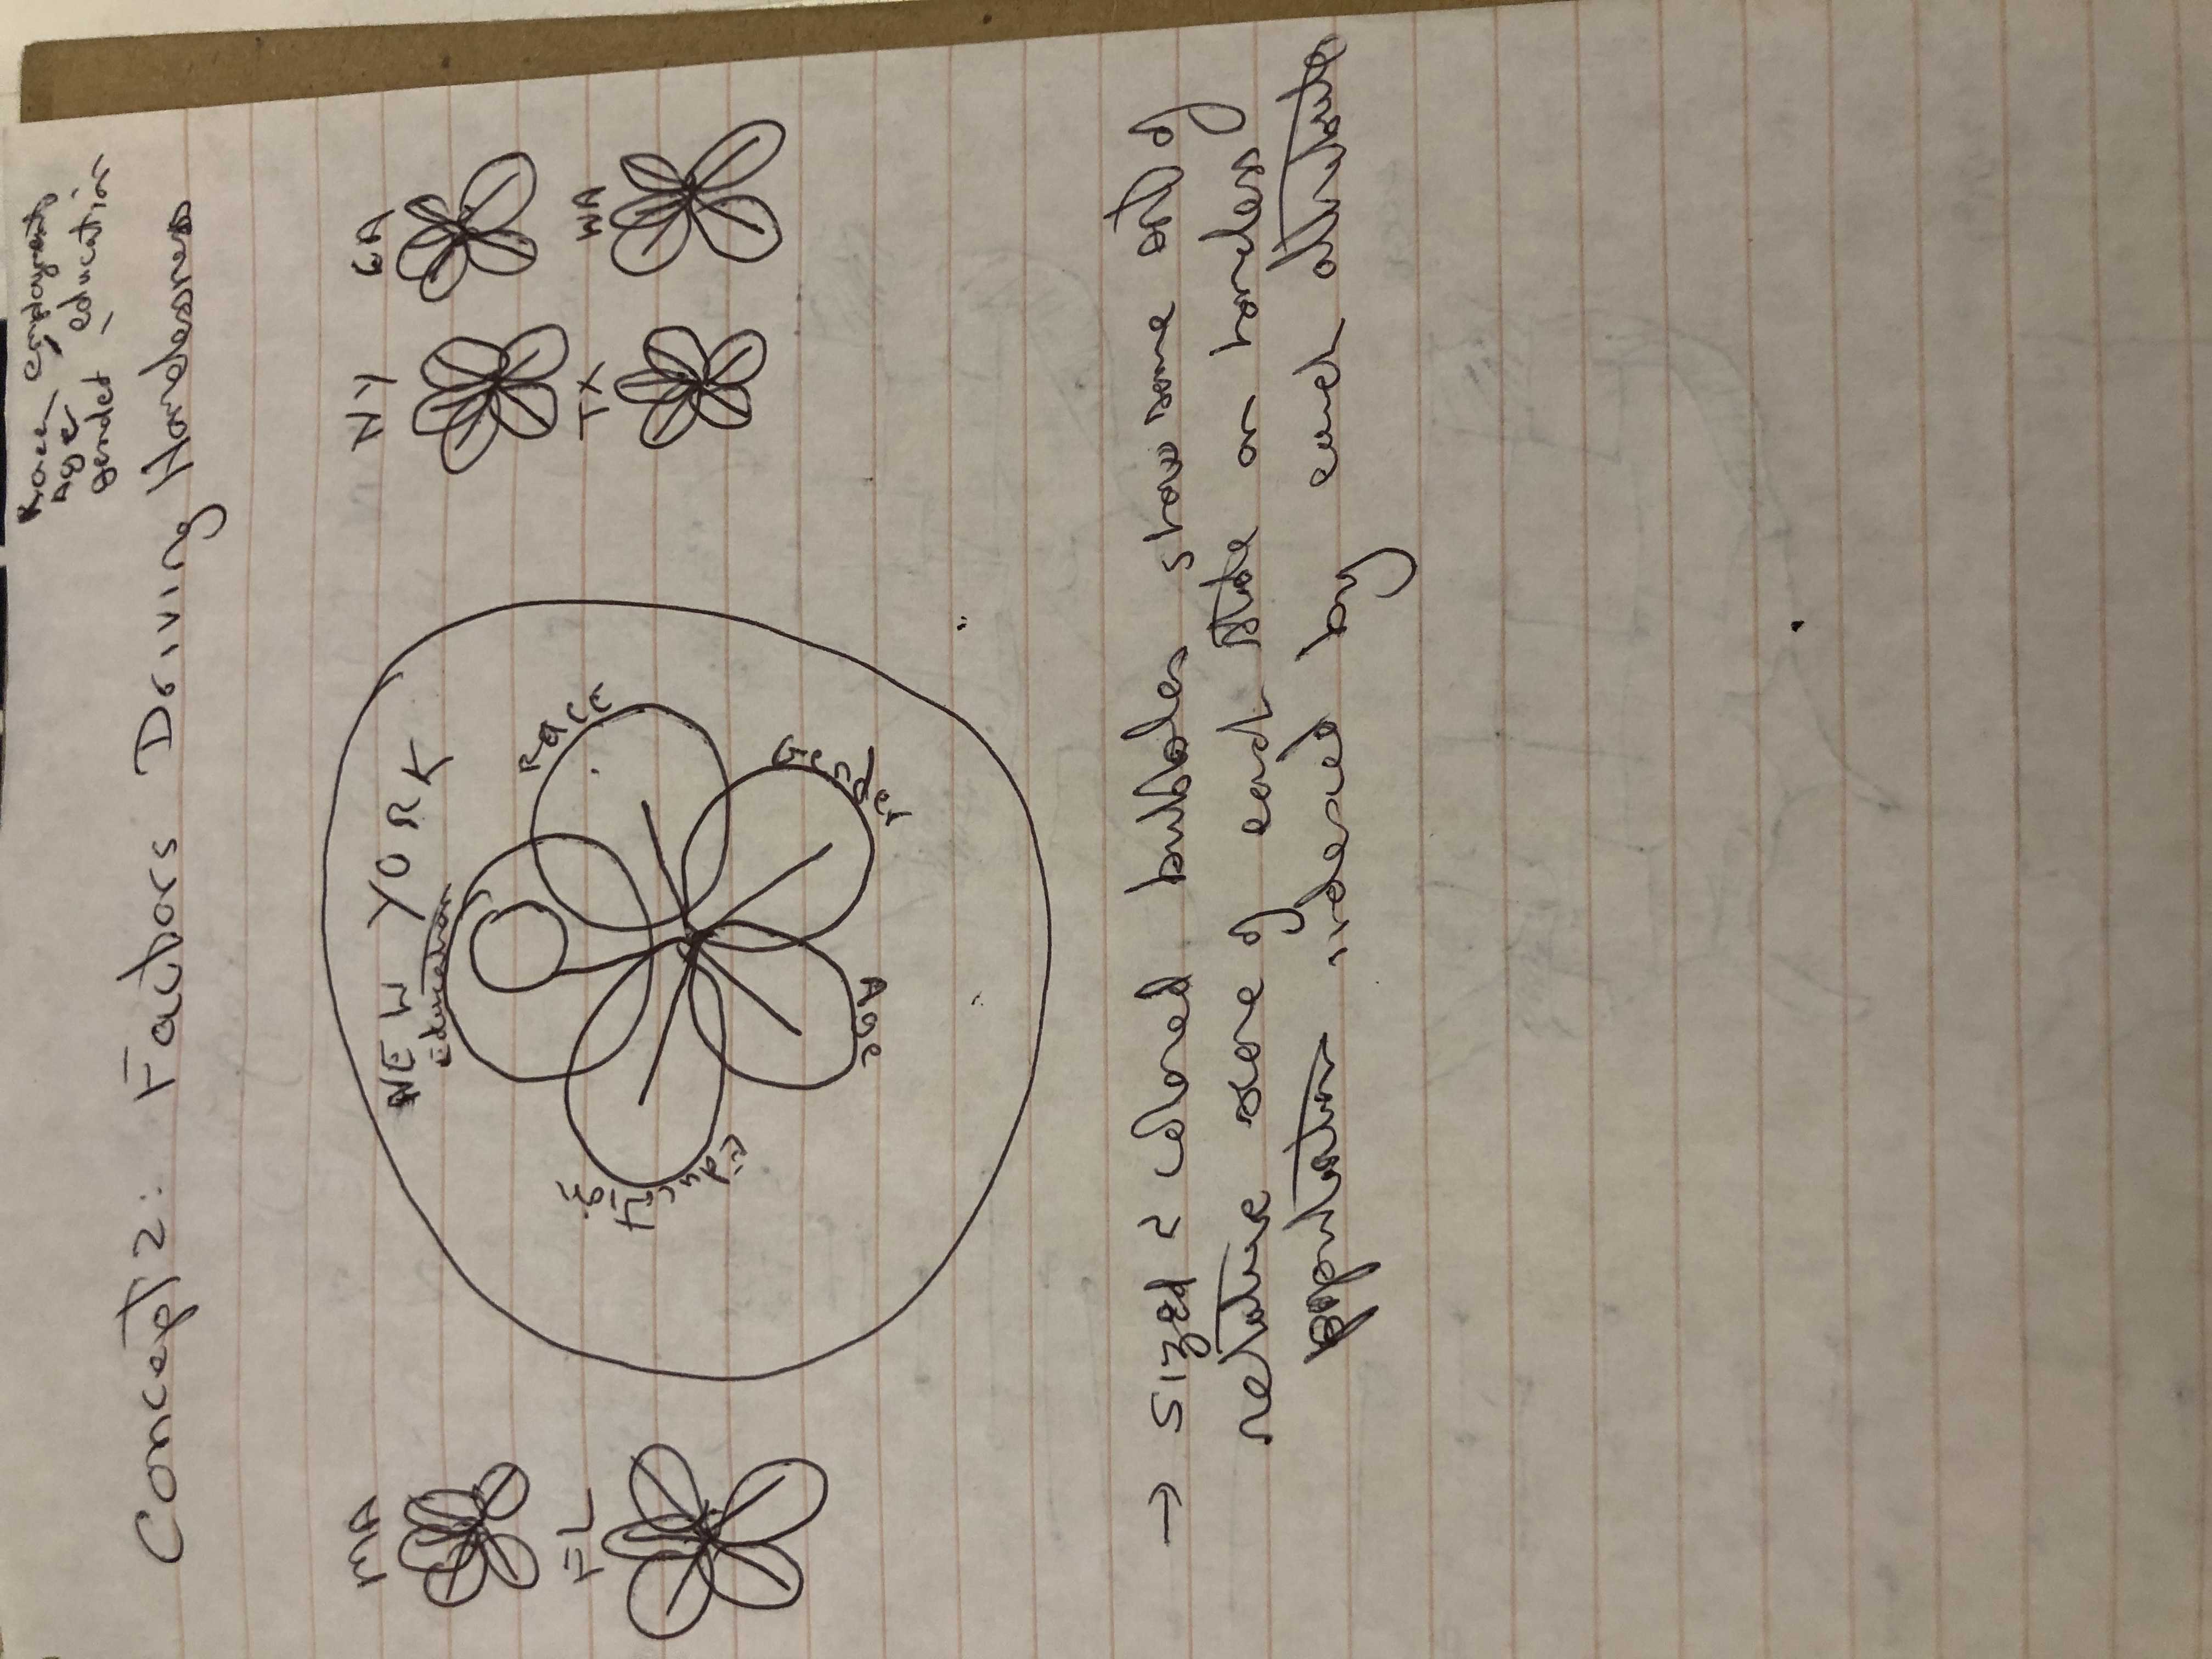 Race employment
Age education
gender
Concept 2: Factors Driving Homelessness
MA
NEW YORK
NY
GA
education
RACE
FL
Education
TX
WA
Gender
Age
→ sized & colored bubbles show some sort of
relative score of each state on homeless
population indexed by each attribute